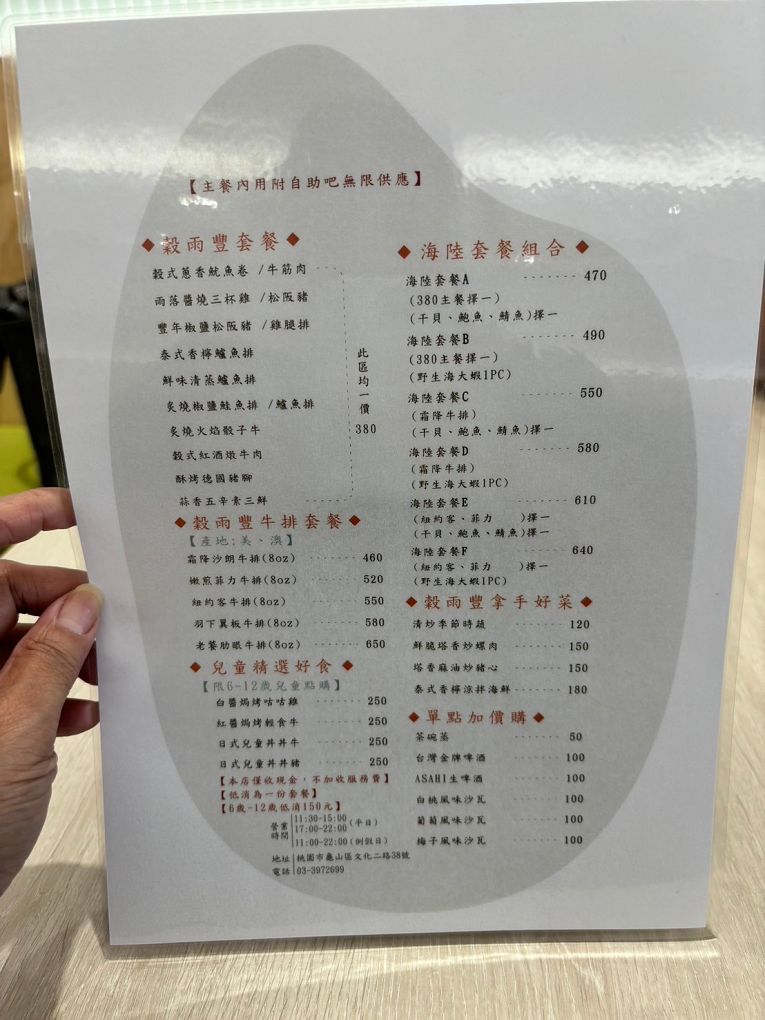 【主餐內用附自助吧無限供應】
◆穀雨豐套餐◆
穀式蔥香魷魚卷 /牛筋肉
雨落醬燒三杯雞 /松阪豬
豐年椒鹽松阪豬 /雞腿排
泰式香檸鱸魚排
鮮味清蒸鱸魚排
炙燒椒鹽鮭魚排 /鱸魚排
炙燒火焰骰子牛
穀式紅酒燉牛肉
酥烤德國豬腳
蒜香五辛素三鮮
此區均一價
380
◆穀雨豐牛排套餐◆
【產地:美、澳】
霜降沙朗牛排(8oz) ------- 460
嫩煎菲力牛排(8oz) ------- 520
紐約客牛排(8oz) ------- 550
羽下翼板牛排(8oz) ------- 580
老饕肋眼牛排(8oz) ------- 650
◆兒童精選好食◆
【限6-12歲兒童點購】
白醬焗烤咕咕雞 ------- 250
紅醬焗烤輕食牛 ------- 250
日式兒童丼丼牛 ------- 250
日式兒童丼丼豬 ------- 250
【本店僅收現金，不加收服務費】
【低消為一份套餐】
【6歲-12歲低消150元】
營業時間
11:30-15:00
17:00-22:00 (平日)
11:00-22:00 (例假日)
地址 桃園市龜山區文化二路38號
電話 03-3972699
◆海陸套餐組合◆
海陸套餐A ------- 470
(380主餐擇一)
(干貝、鮑魚、鯖魚)擇一
海陸套餐B ------- 490
(380主餐擇一)
(野生海大蝦1PC)
海陸套餐C ------- 550
(霜降牛排)
(干貝、鮑魚、鯖魚)擇一
海陸套餐D ------- 580
(霜降牛排)
(野生海大蝦1PC)
海陸套餐E ------- 610
(紐約客、菲力 )擇一
(干貝、鮑魚、鯖魚)擇一
海陸套餐F ------- 640
(紐約客、菲力 )擇一
(野生海大蝦1PC)
◆穀雨豐拿手好菜◆
清炒季節時蔬 ------- 120
鮮脆塔香炒螺肉 ------- 150
塔香麻油炒豬心 ------- 150
泰式香檸涼拌海鮮 ------- 180
◆單點加價購◆
茶碗蒸 ------- 50
台灣金牌啤酒 ------- 100
ASAHI生啤酒 ------- 100
白桃風味沙瓦 ------- 100
葡萄風味沙瓦 ------- 100
梅子風味沙瓦 ------- 100